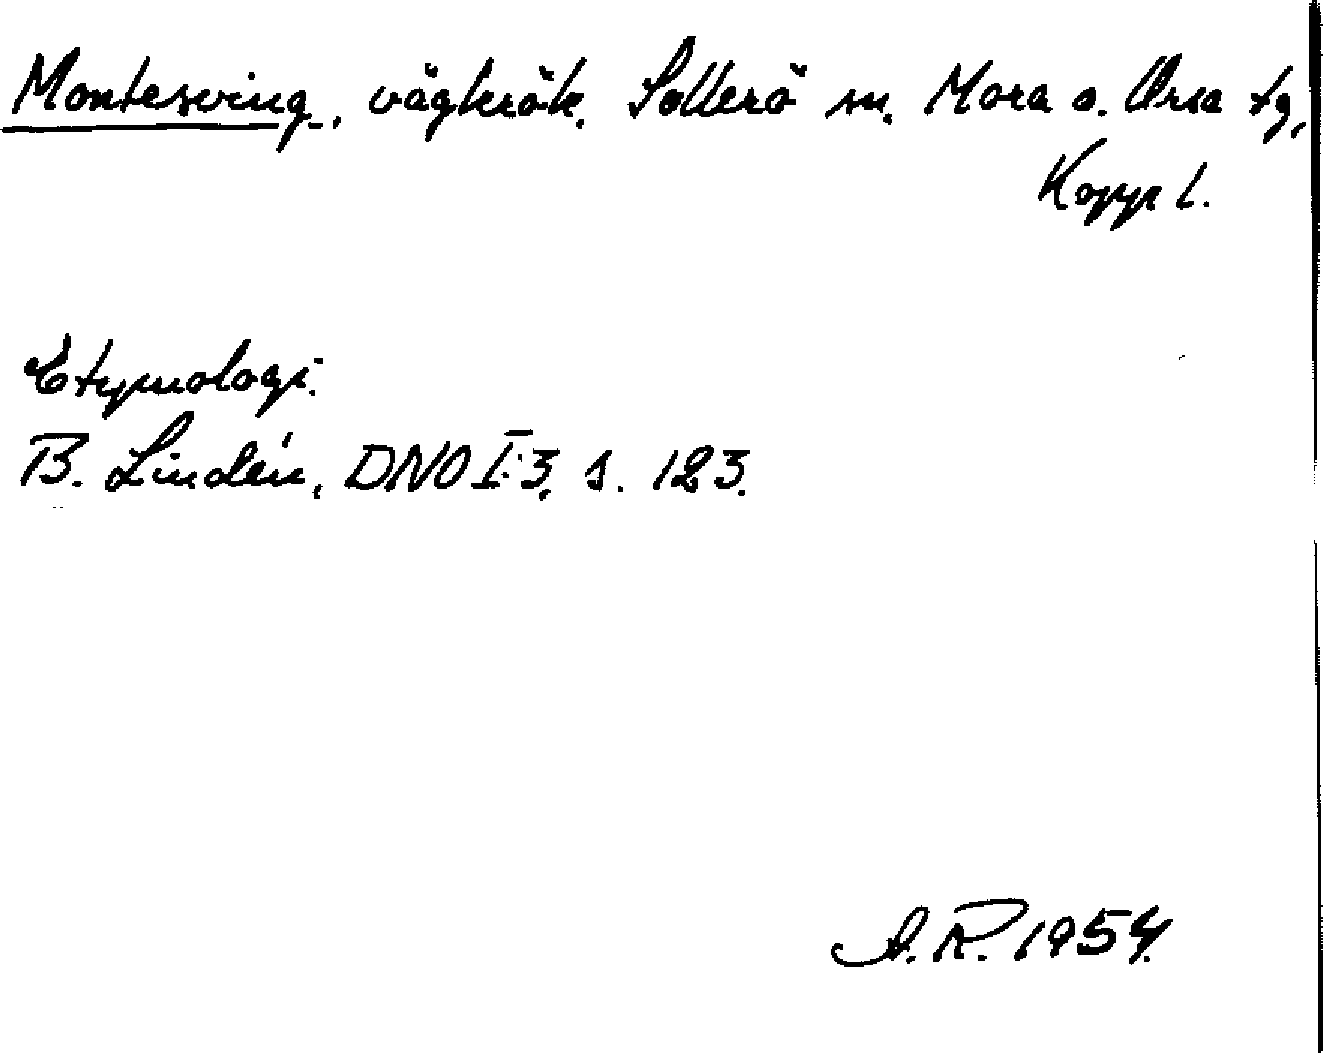 Montesving, vägkrök, Sollerö sn, Mora o. Orsa tg,
Kopp l.
Etymologi.
B. Lindén, DNO I:3, s. 123.
A.R. 1954.